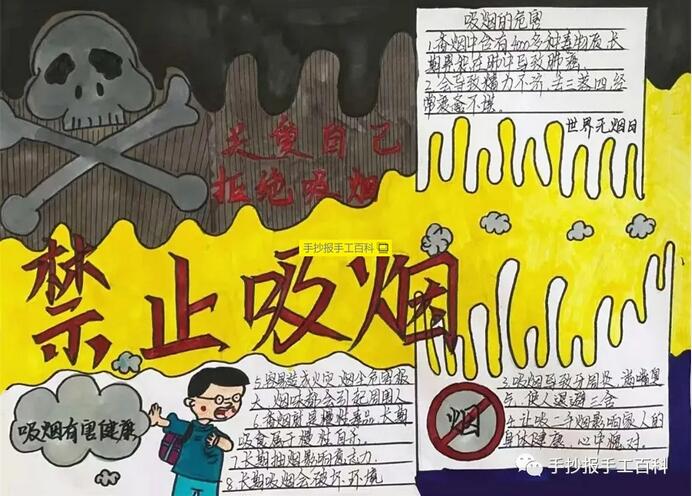 吸烟的危害
1.香烟中含有400多种毒物质,长
期累积在肺中导致肺癌。
2.会导致精力不济,丢三落四,经
常疲备不堪。
世界无烟日
关爱自己
拒绝吸烟
手抄报手工百科
禁止吸烟
吸烟有害健康
5.容易造成火灾,烟尘危害极
大,烟味都会引起周围人
6.香烟就是慢性毒品,长期
吸食属于慢性自杀。
7.长期抽烟影响意志力。
8.长期吸烟会破坏环境
烟
3.吸烟导致牙周炎,满嘴臭
,使人退避三舍
4.让吸二手烟影响家人的
身体健康,心中愧对。
手抄报手工百科